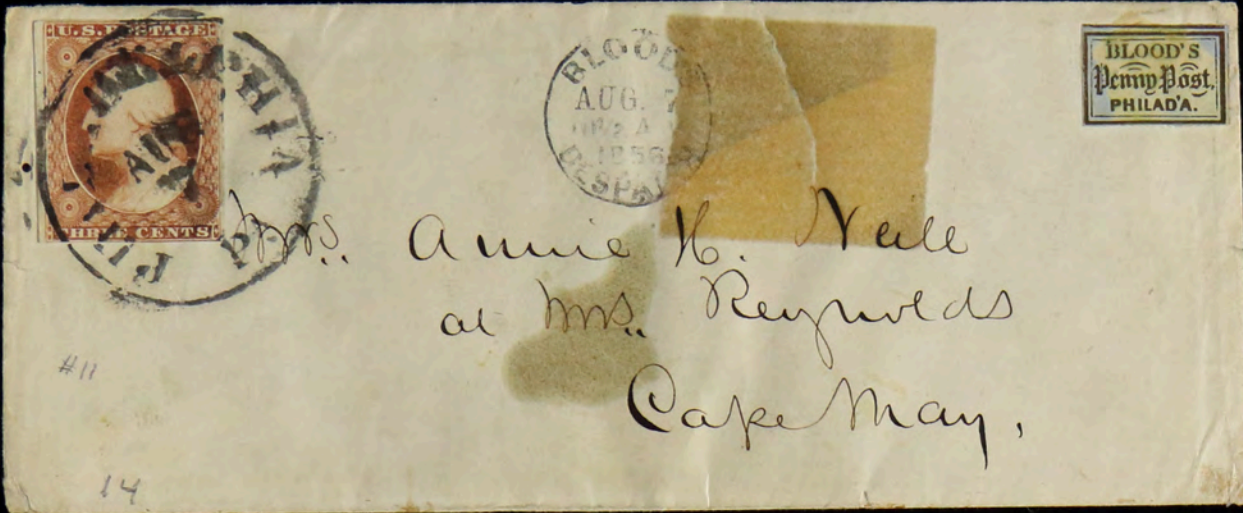 U.S. POSTAGE
THREE CENTS
PHILADELPHIA
Pa.
AUG
BLOOD'S
AUG.
1856
DESPATCH
BLOOD'S
Penny Post,
PHILAD'A.
Mrs. Annie H. Neill
at Mrs. Reynolds
Cape May,
#11
14